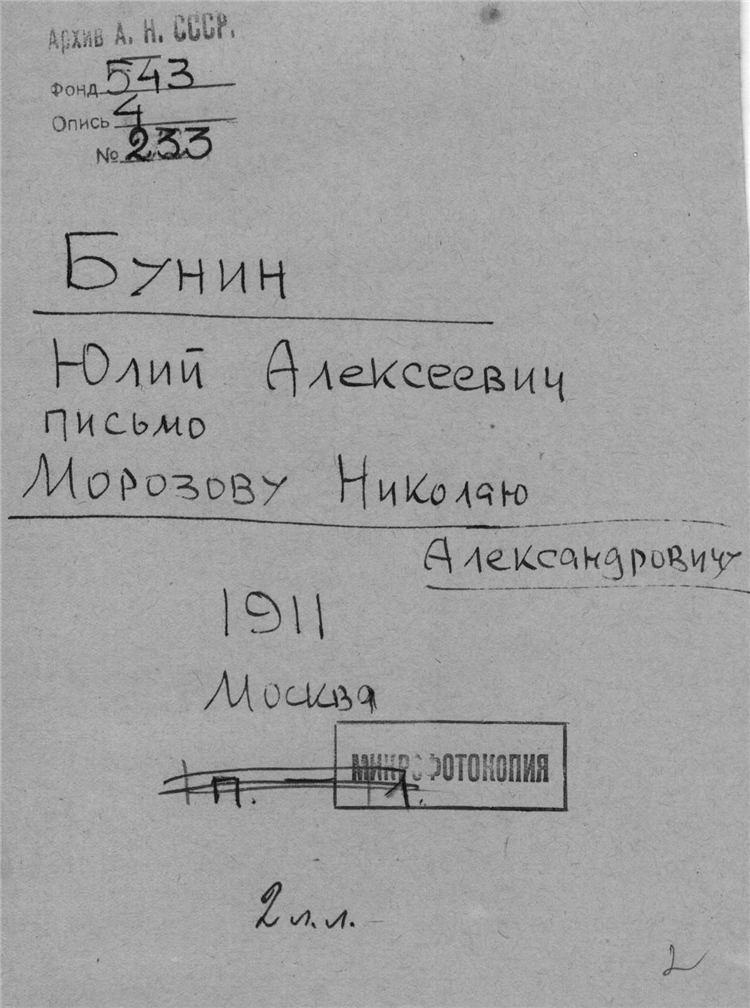 Архив А. Н. СССР.
Фонд 543
Опись 4
№ 233
Бунин
Юлий Алексеевич
письмо
Морозову Николаю
Александровичу
1911
Москва
МИКРОФОТОКОПИЯ
1 п. — 1 л.
2 л.л.
2